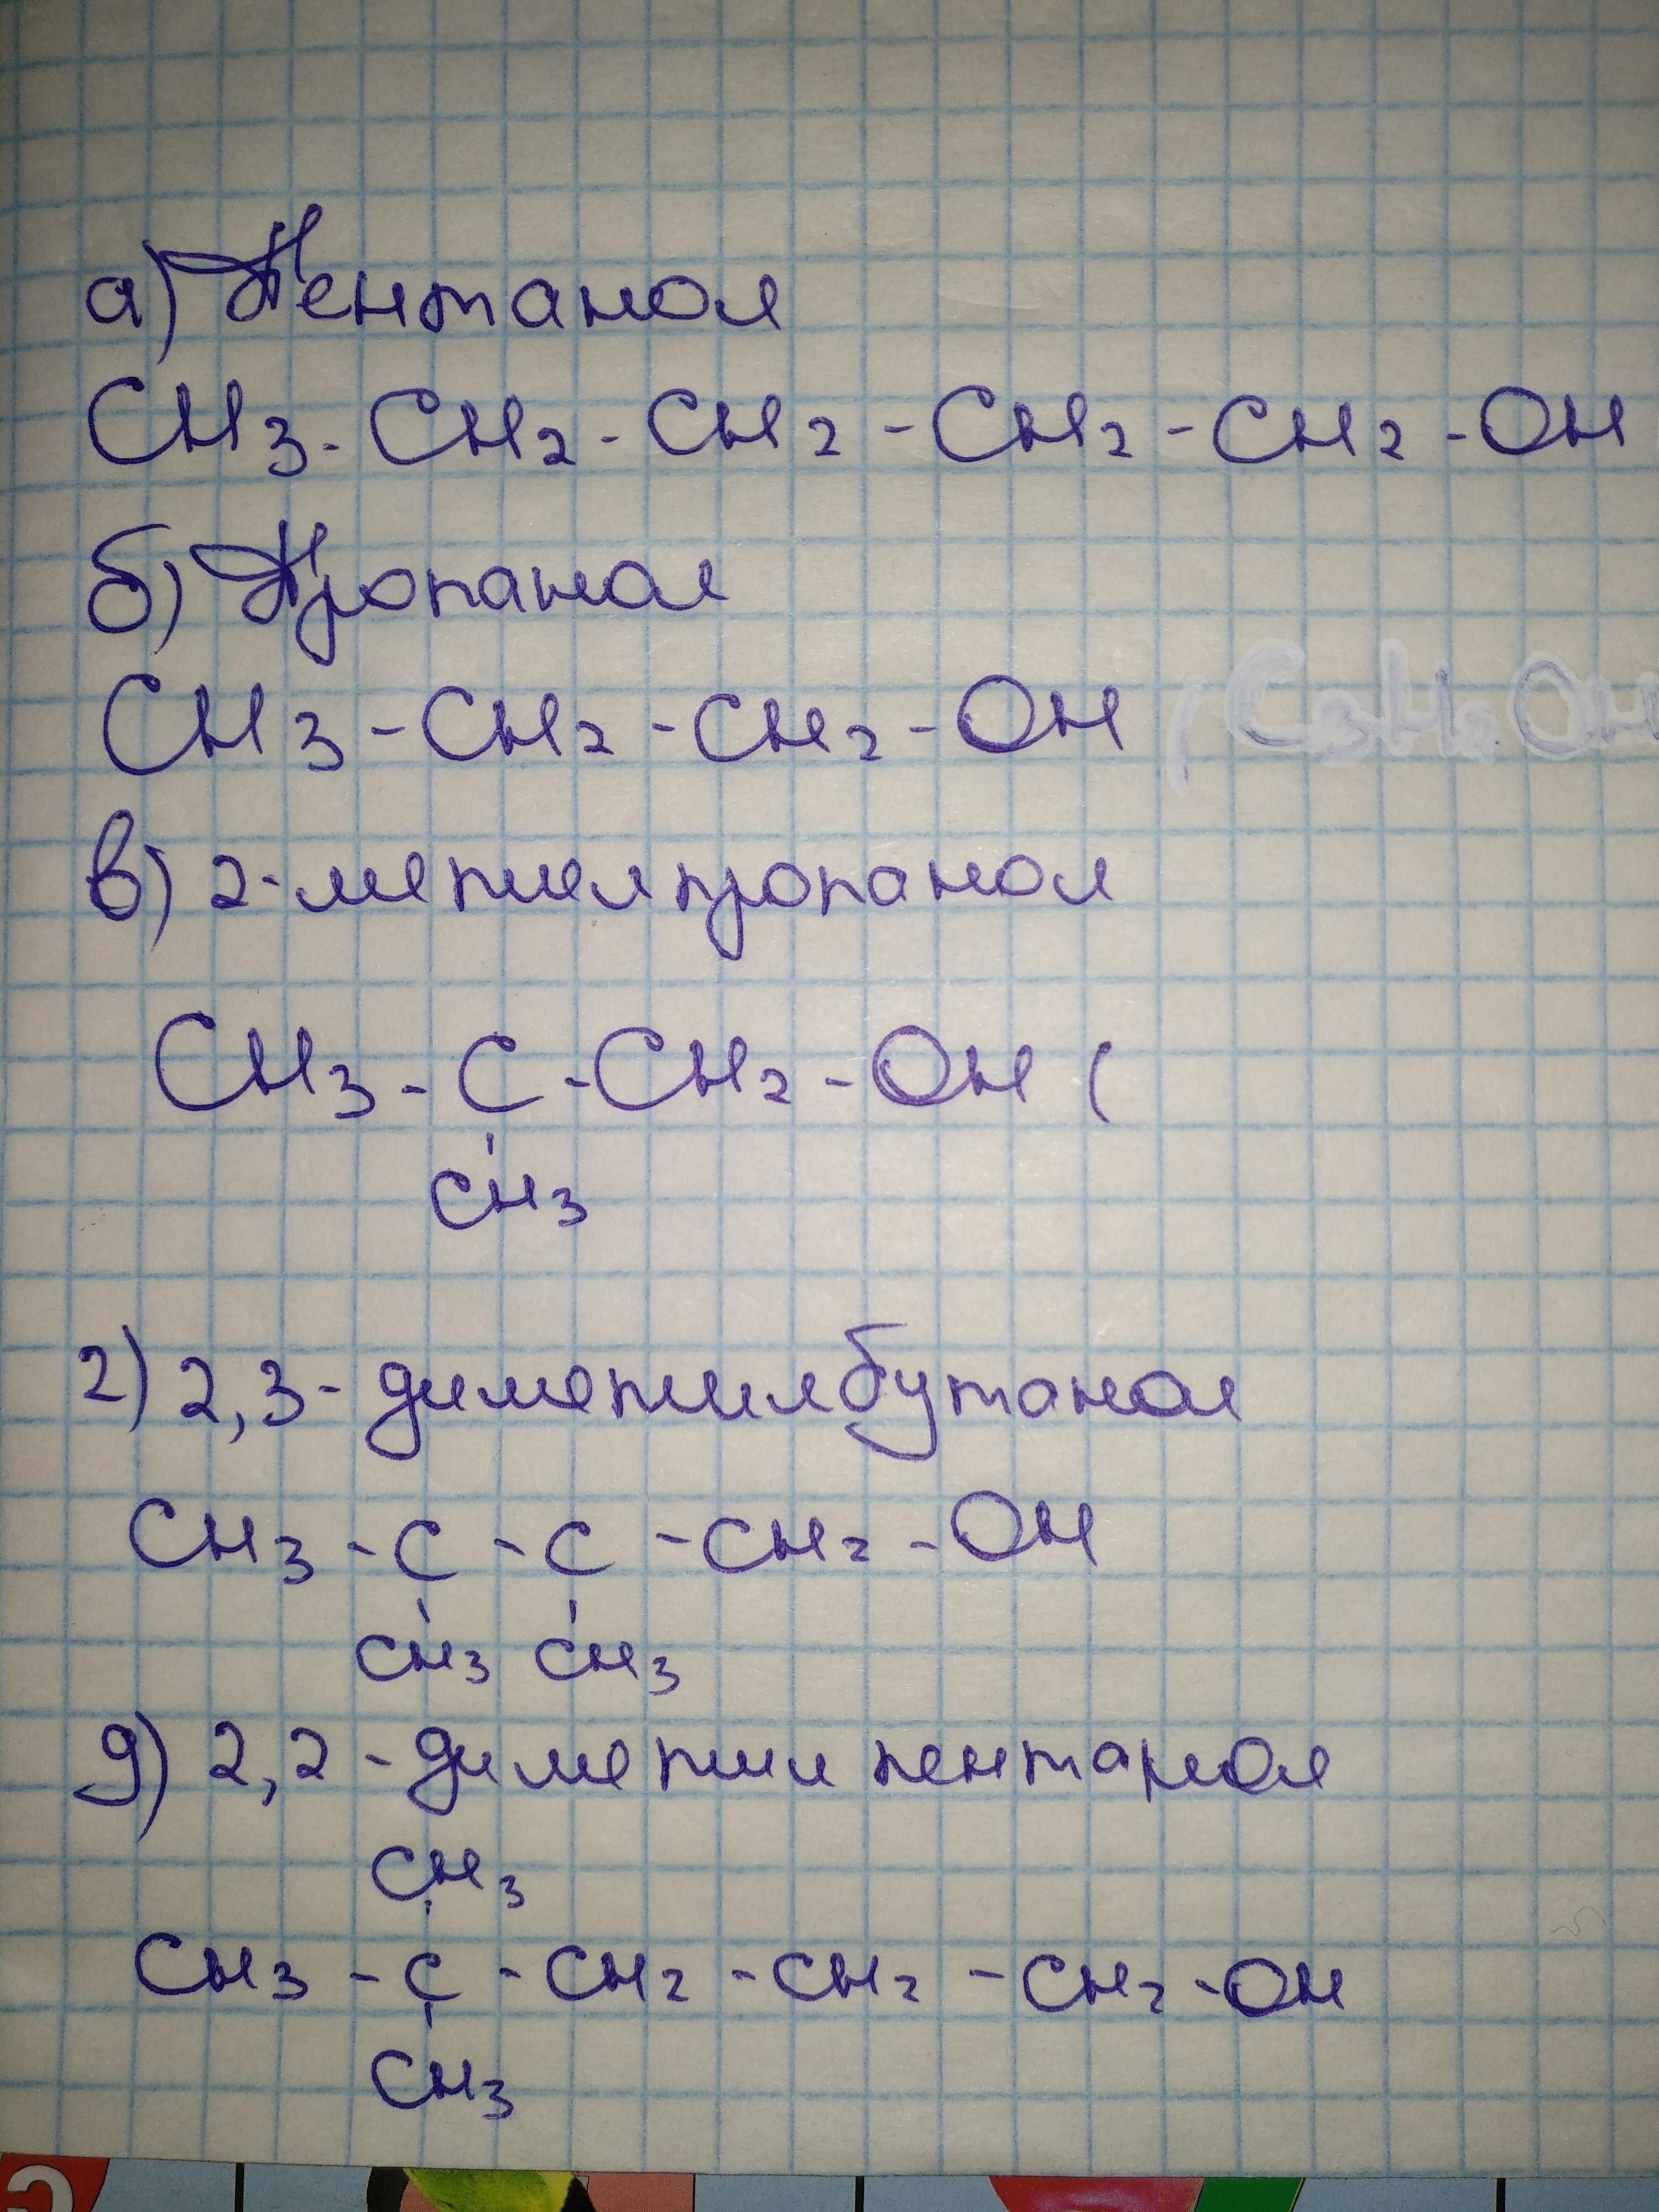 а) Пентанол
CH3 - CH2 - CH2 - CH2 - CH2 - OH
б) Пропанол
CH3 - CH2 - CH2 - OH (
в) 2-метилпропанол
CH3 - C - CH2 - OH (
CH3
г) 2,3 - диметилбутанол
CH3 - C - C - CH2 - OH
CH3 CH3
д) 2,2 - диметил пентанол
CH3
CH3 - C - CH2 - CH2 - CH2 - OH
CH3